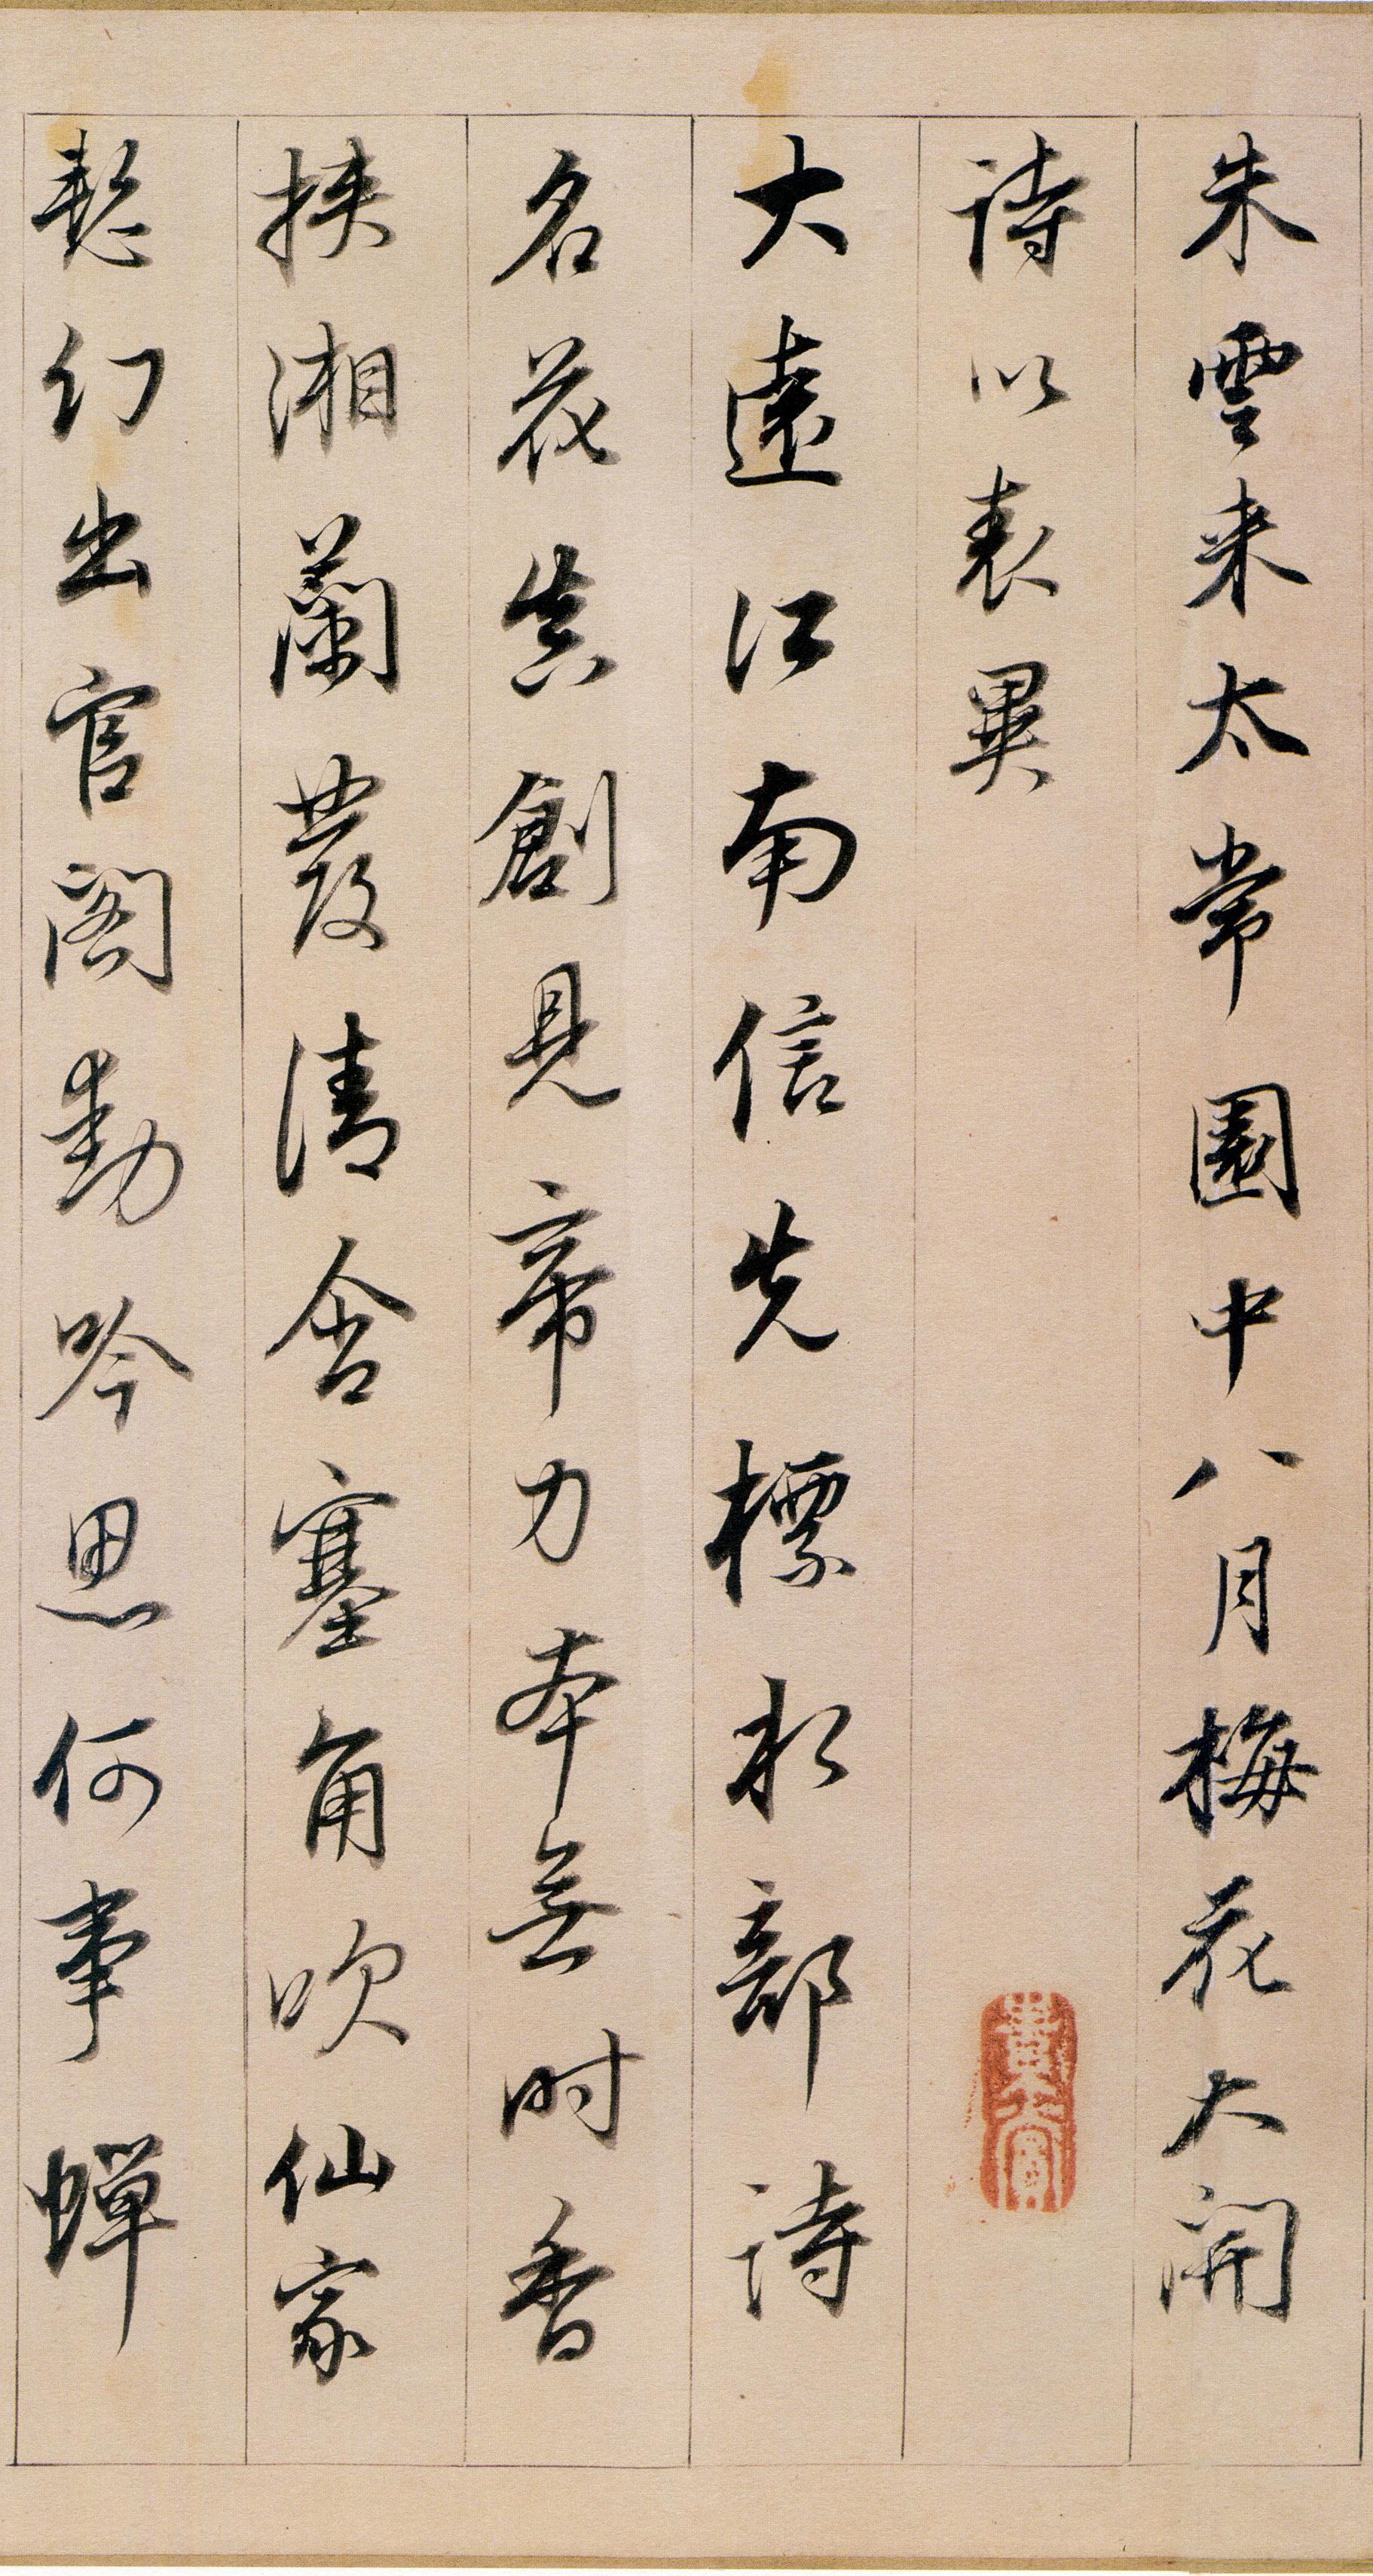 朱雲来太常園中八月梅花大開
詩以表異
大遠江南信先標水部詩
名花真創見帝力本無時香
挟湘蘭發清含塞角吹仙家
慙幻出官閣動吟思何事蟬